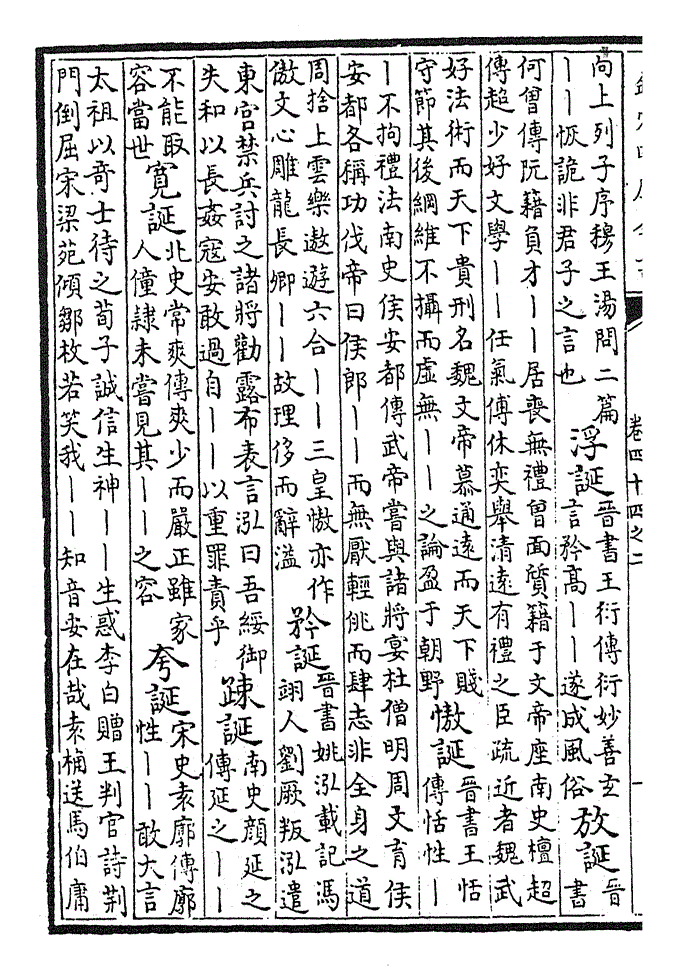 卷四十四之二
向上列子序穆王湯問二篇
——恢詭非君子之言也
浮誕
晉書王衍傳衍妙善玄
言矜高——遂成風俗
放誕
晉
書
何曾傳阮籍負才——居喪無禮曾面質籍于文帝座南史檀超
傳超少好文學——任氣傅休奕舉清遠有禮之臣疏近者魏武
好法術而天下貴刑名魏文帝慕通遠而天下賤
守節其後綱維不攝而虛無——之論盈于朝野
慠誕
晉書王恬
傳恬性—
—不拘禮法南史侯安都傳武帝嘗與諸將宴杜僧明周文育侯
安都各稱功伐帝曰侯郎——而無厭輕佻而肆志非全身之道
周捨上雲樂遨遊六合——三皇慠亦作
傲文心雕龍長卿——故理侈而辭溢
矜誕
晉書姚泓載記馮
翊人劉厥叛泓遣
東宮禁兵討之諸將勸露布表言泓曰吾綏御
失和以長姦寇安敢過自——以重罪責乎
疎誕
南史顏延之
傳延之——
不能取
容當世
寬誕
北史常爽傳爽少而嚴正雖家
人僮隸未嘗見其——之容
夸誕
宋史袁廓傳廓
性——敢大言
太祖以奇士待之荀子誠信生神——生惑李白贈王判官詩荆
門倒屈宋梁苑傾鄒枚若笑我——知音安在哉袁桷送馬伯庸